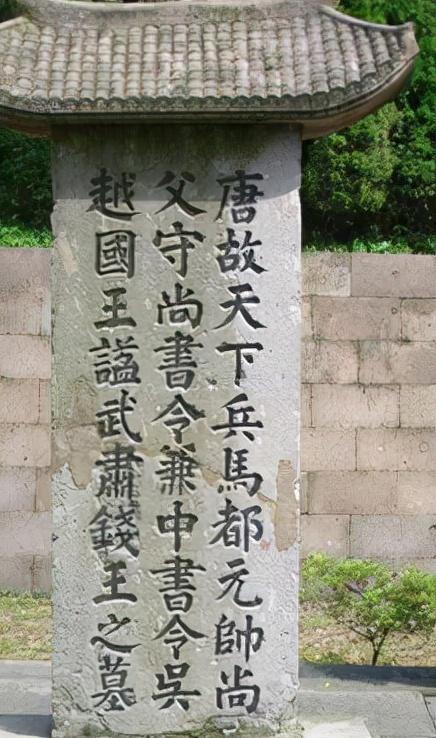 唐故天下兵馬都元帥尚
父守尚書令兼中書令吳
越國王謚武肅錢王之墓